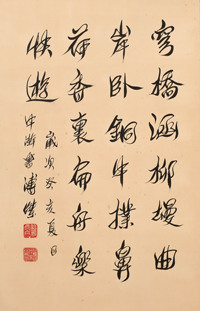 穹橋涵柳堤曲
岸卧銅牛撲鼻
荷香裏扁舟樂
快遊
歲次癸亥夏日
中澣書 溥傑